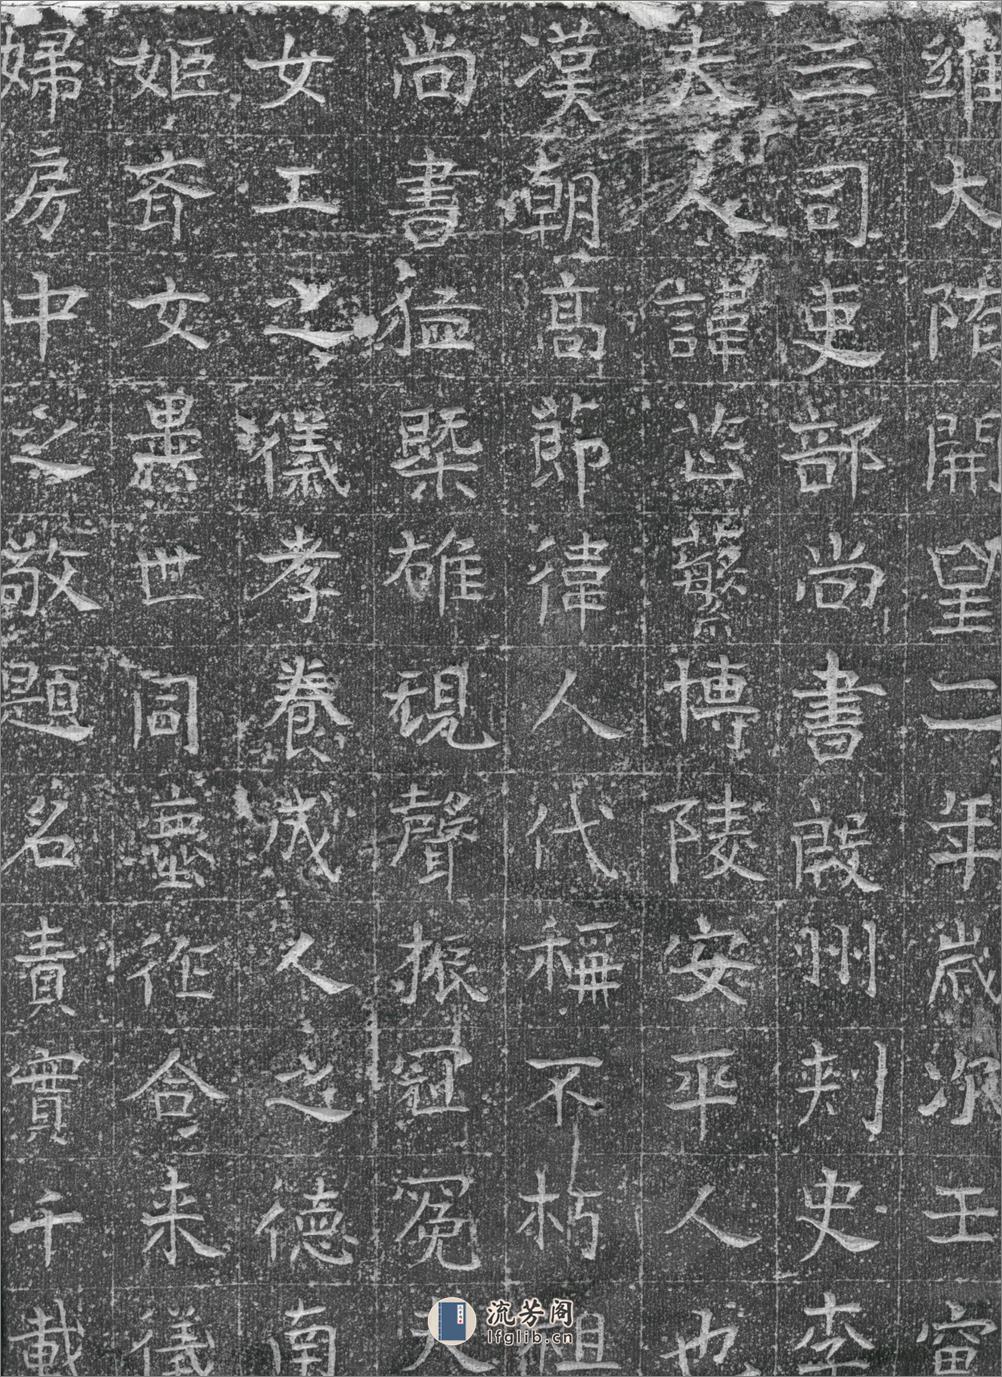 維大隋開皇二年歲次壬寅
三司吏部尚書殷州刾史李
夫人諱芷蘩博陵安平人也
漢朝高節偉人代稱不朽祖
尚書猛槩雄規聲振冠冕夫
女工之儀孝養成人之德南
姬齊女異世同塵作合来儀
婦房中之敬題名責實千載
流芳阁
lfglib.cn